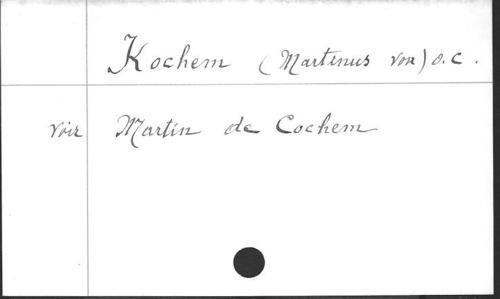 Kochem (Martinus von) o.c.
voir Martin de Cochem